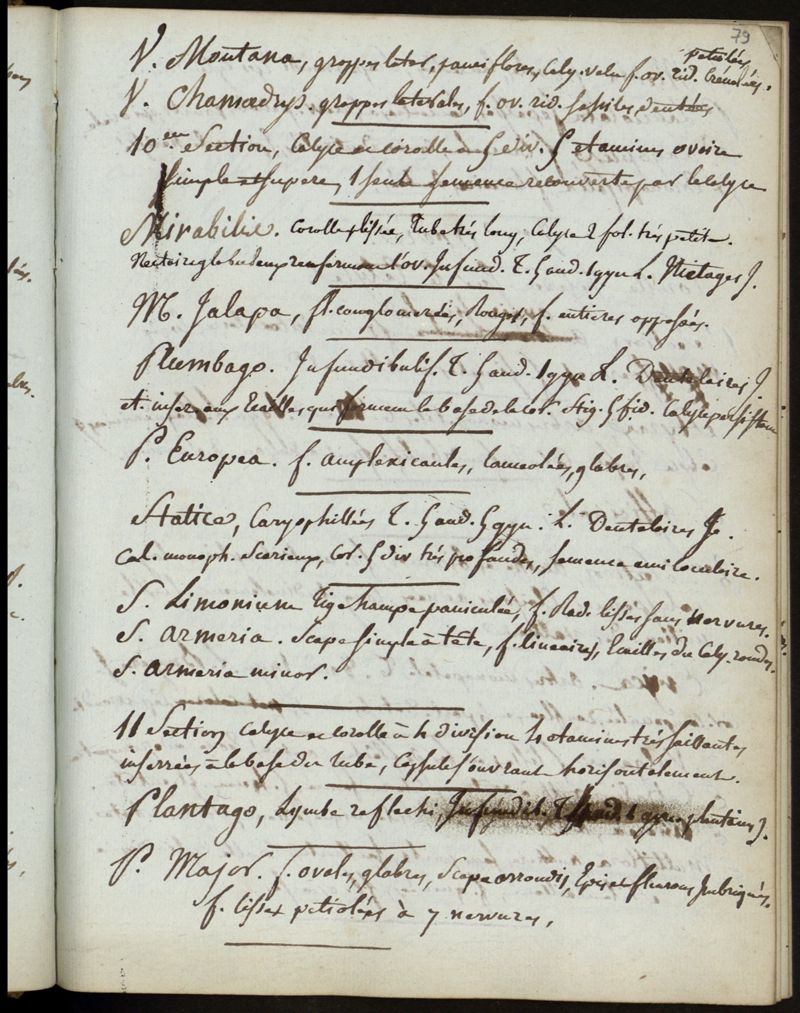 79
V. Montana, grappes later, pauciflores, Caly. velu f. ov. rid. Crénelées.
petiolées
V. Chamœdrys. grappes latérales, f. ov. rid. sessiles, dentées
10eme Section, Calyce et corolle à 5 div. 5 etamines ovaire
simple et supere, 1 seule semence recouverte par le calyce
Mirabilis. Corolle plissée, tube très long, Calyce 2 fol. très petite.
Nectaire globuleux renfermant l'ov. Infund. T. 5 and. 1 gyn L. Nictages J.
M. Jalapa, fl. conglomerées, Rouges, f. entieres opposées.
Plumbago. Infundibulif. T. 5 and. 1 gyn L. Dentelaires J
et. inser. aux Ecailles qui forment la base de la cor. Stig. 5 fid. Calyce persistant
P. Europea. f. amplexicaules, lanceolées, glabres,
Statice, Caryophillées T. 5 and. 5 gyn. L. Dentelaires J.
Cal. monoph. Scarieux, Cor. 5 div très profondes, semence uniloculaire.
S. Limonium Tige hampe paniculée, f. Rad. lisses sans nervures.
S. armeria. Scape simple à tête, f. lineaires, Ecailles du Caly. rondes.
S. armeria minor.
11 Section Calyce et corolle à 4 division 4 etamines très saillantes
inserrées à la base du tube, Capsule s'ouvrant horisontalement.
Plantago, Lymbe reflechi, Infundib. T. 4 and. 1 gyn. plantains J.
P. Major. f. ovales, glabres, Scape arrondi, Epis et fleurons Imbriqués.
f. lisses petiolées à 7 nervures,